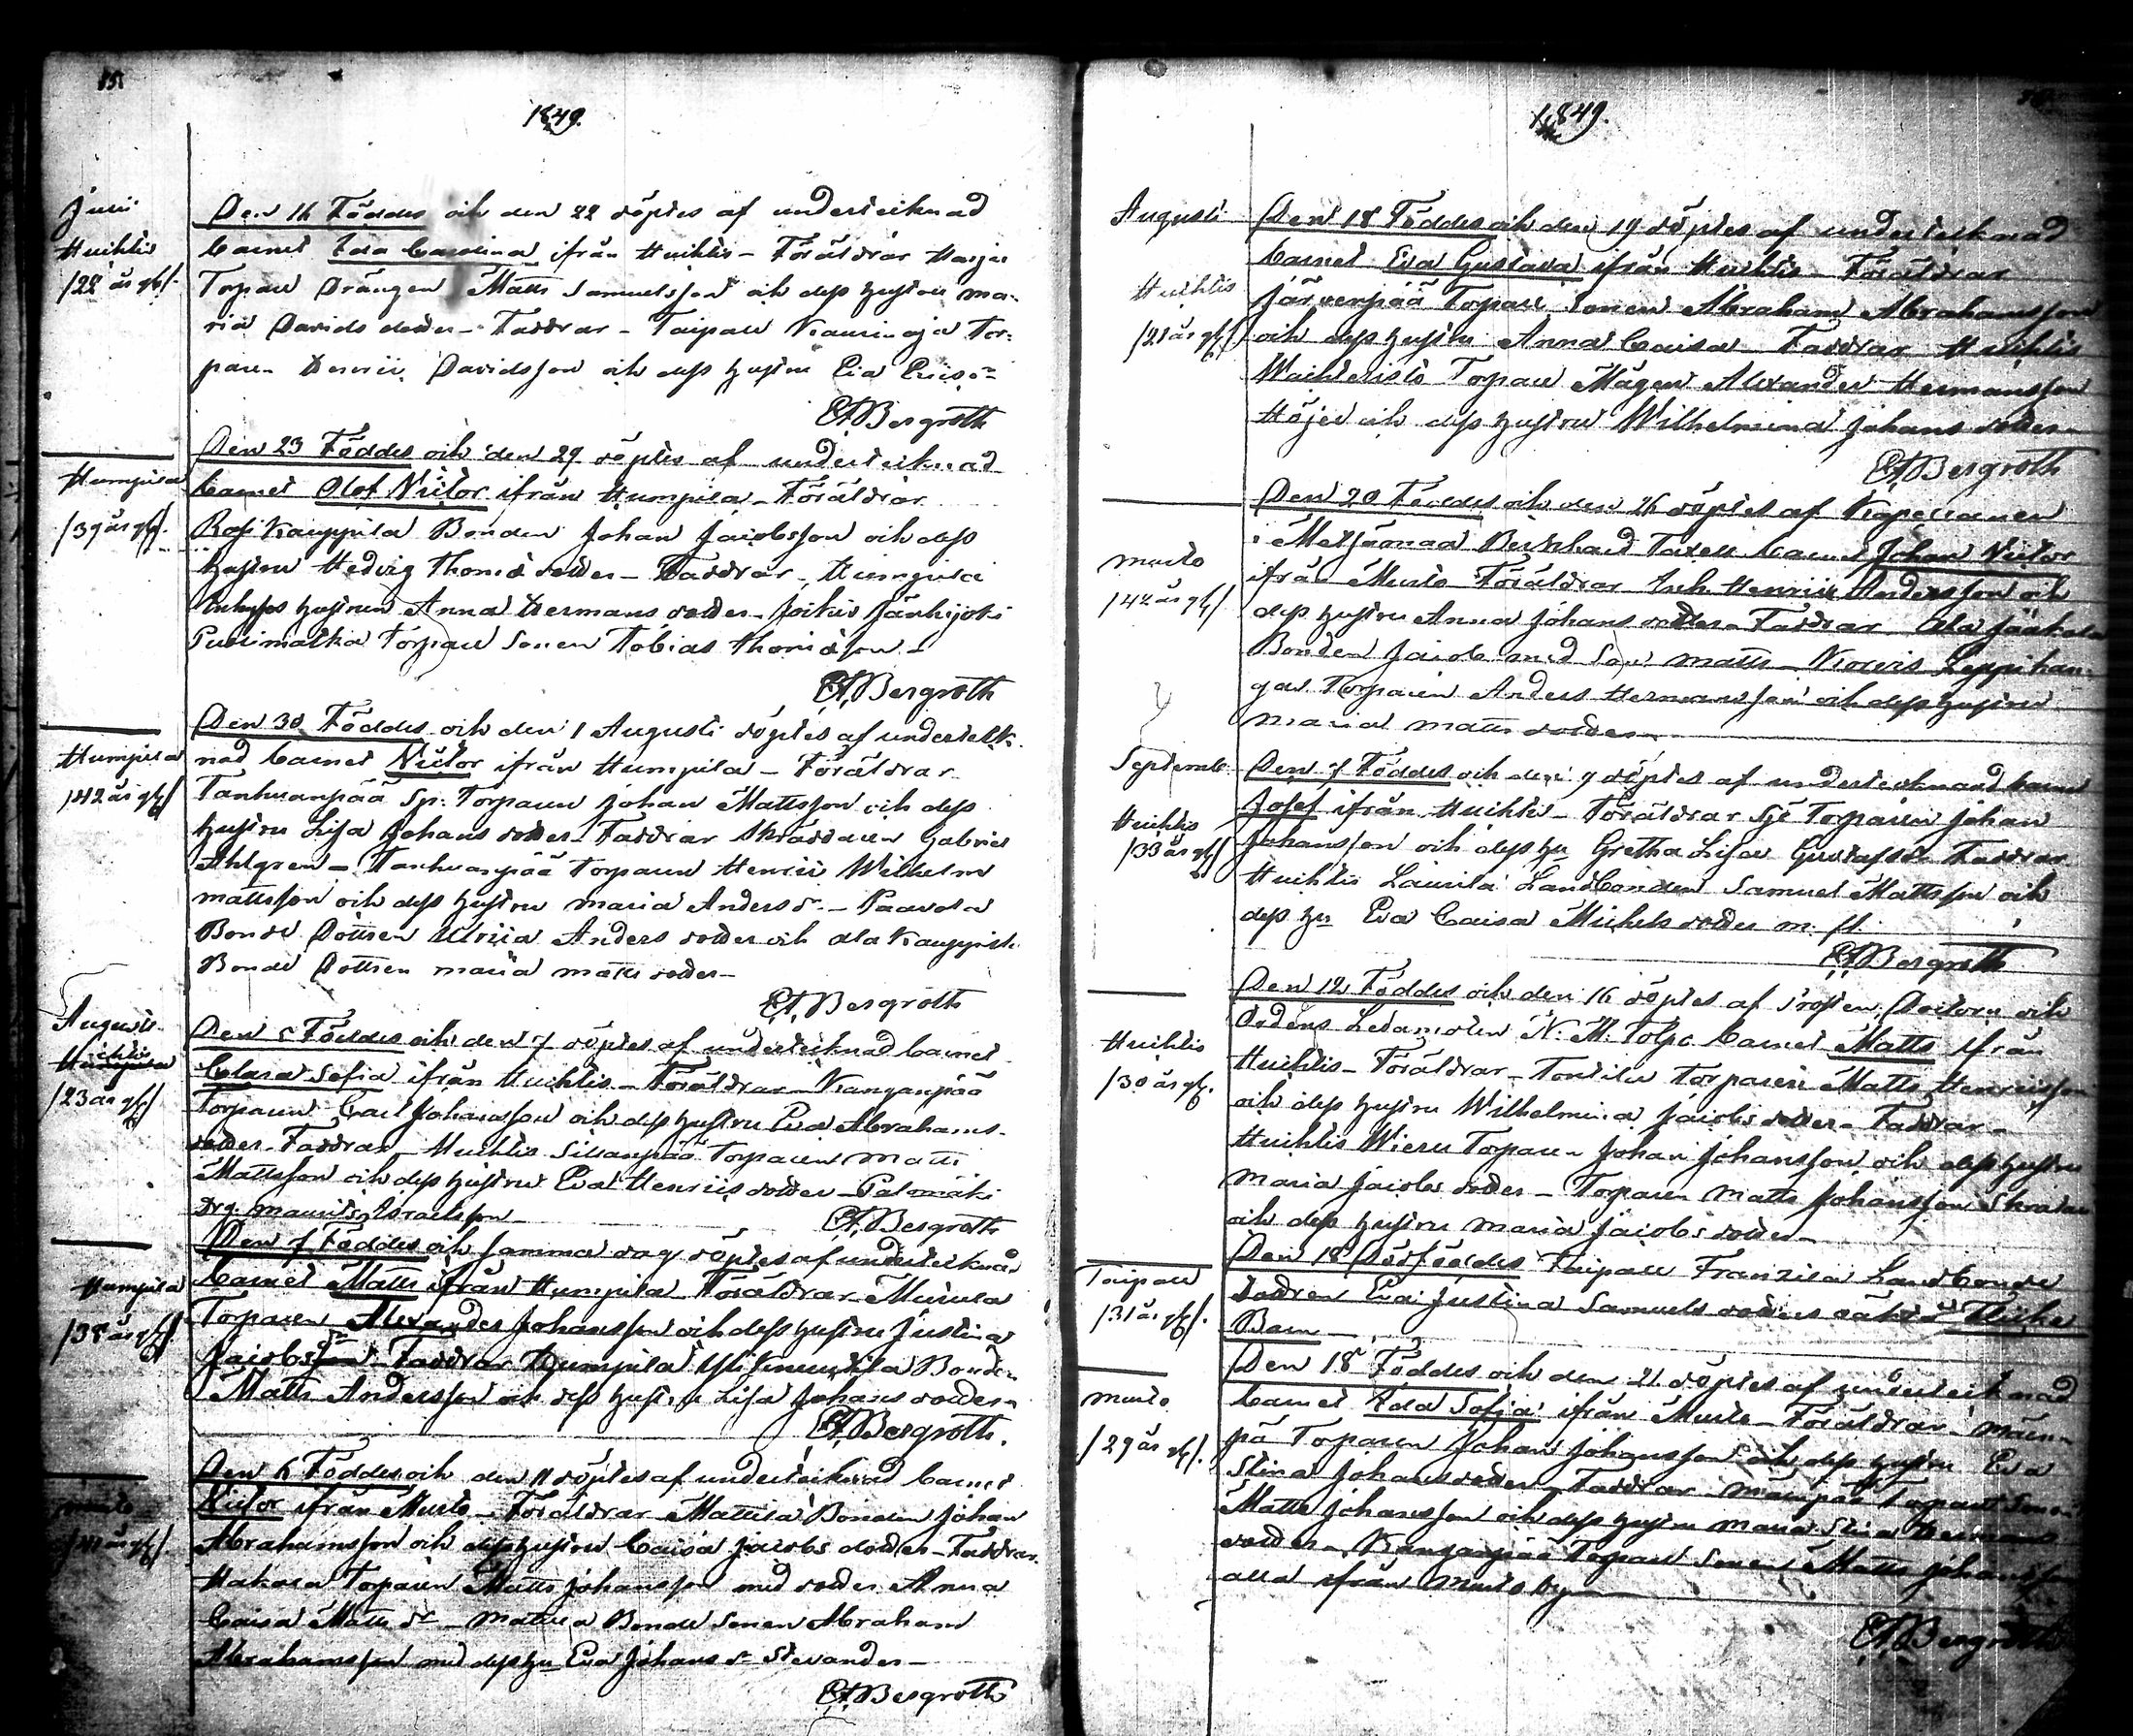 1849.
Juli
Huihtis
/22 år gl/.
Den 16 Föddes och den 22 döptes af undertecknad
barnet Ida Carolina ifrån Huihtis – Föräldrar Harju
Torpare Drängen Matts Samuelsson och dess hustru Ma-
ria Davids dotter – Faddrar – Taipale Torp-
paren Henric Davidsson och dess hustru Eva
EABergroth
Humpila
/39 år gl/.
Den 23 Föddes och den 29 döptes af undertecknad
barnet Olof Victor ifrån Humpila – Föräldrar
Kauppila Bonden Johan Jacobsson och dess
hustru Hedvig Thomæ dotter – Faddrar – Humpila
hustrun Anna Hermans dotter – Jockis Jänhijoki
Torpare Sonen Tobias Thomæson –
EABergroth
Humpila
/42 år gl/
Den 30 Föddes och den 1 Augusti döptes af underteck-
nad barnet Victor ifrån Humpila – Föräldrar
Tanhuanpää Sp: Torparen Johan Mattsson och dess
hustru Lisa Johans dotter – Faddrar Skräddaren Gabriel
Ahlgren – Tanhuanpää Torparen Henric Wilhelm
Mattsson och dess hustru Maria Anders dr – Paavola
Bonde Dottren Ulrica Anders dotter och Ala Kauppila
Bonde Dottren Maria Matts dotter –
EABergroth
Augusti
Huihtis
/23 år gl/
Den 5 Föddes och den 7 döptes af undertecknad barnet
Clara Sofia ifrån Huihtis – Föräldrar – Kanganpää
Torparen Carl Johansson och dess hustru Eva Abrahams-
dotter – Faddrar – Huihtis Sillanpää Torparen Matts
Mattsson och dess hustru Eva Henrics dotter – Palomäki
Drg. Maurits Israelsson –
EABergroth
Humpila
/38 år gl/.
Den 7 Föddes och samma dag döptes af undertecknad
barnet Matts ifrån Humpila Föräldrar Murula
Torparen Alexander Johansson och dess hustru Justina
Jacobs dr – Faddrar Humpila Bonden
Matts Andersson och dess hustru Lisa Johans dotter –
EABergroth.
Murto
/41 år gl/.
Den 6 Föddes och den 11 döptes af undertecknad barnet
Victor ifrån Murto – Föräldrar Mattila Bonden Johan
Abrahamsson och dess hustru Caisa Jacobs dotter – Faddrar
Hakola Torparen Matts Johansson med dotter Anna
Caisa Matts dr – Mattila Bonde Sonen Abraham
Abrahamsson med dess hu Eva Johans dr Stevander –
EABergroth
1849.
Augusti
Huihtis
/21 år gl/
Den 18 Föddes och den 19 döptes af undertecknad
barnet Eva Gustava ifrån Huihtis – Föräldrar
Järvenpää Torpare Sonen Abraham Abrahamsson
och dess hustru Anna Caisa – Faddrar Huihtis
Torpare Mågen Alexander Hermansson
Höijer och dess hustru Wilhelmina Johans dotter –
EABergroth
Murto
/42 år gl/
Den 20 Föddes och den 26 döptes af Kapellanen
i Metsämaa Taxell barnet Johan Victor
ifrån Murto – Föräldrar Inh. Henric Andersson och
dess hustru Anna Johans dotter – Faddrar Ala Jaakola
Bonden Jacob med Son Matts – Leppikan-
gas Torparen Anders Hermansson och dess hustru
Maria Matts dotter –
Septemb.
Huihtis
/33 år gl/
Den 7 Föddes och den 9 döptes af undertecknad barnet
Josef ifrån Huihtis – Föräldrar Torparen Johan
Johansson och dess hu Gretha Lisa Gustafs dr Faddrar
Huihtis Laurila Landbonden Samuel Mattsson och
dess hu Eva Caisa Michels dotter m. fl.
EABergroth
Huihtis
/30 år gl.
Den 12 Föddes och den 16 döptes af Prosten, Doctorn och
Ordens Ledamoten N. M. Tolpo barnet Matts ifrån
Huihtis – Föräldrar – Torparen Matts Henricsson
och dess hustru Wilhelmina Jacobs dotter – Faddrar –
Huihtis Wieru Torparen Johan Johansson och dess hustru
Maria Jacobs dotter – Torparen Matts Johansson
och dess hustru Maria Jacobs dotter –
Taipale
/31 år gl/.
Den 18 Dödföddes Taipale Fransila Landbonde
dottren Eva Justina Samuels dotters oäkta Flicke
Barn –
Murto
/29 år gl/.
Den 18 Föddes och den 21 döptes af undertecknad
barnet Ida Sofia ifrån Murto – Föräldrar – Mäen-
pä Torparen Johan Johansson och dess hustru Eva
Stina Johans dotter – Faddrar – Mäenpää Torpare Sonen
Matts Johansson och dess hustru Maria Stina Hermans
dotter – Kanganpää Torpare Sonen Matts Johansson
alla ifrån Murto by –
EABergroth